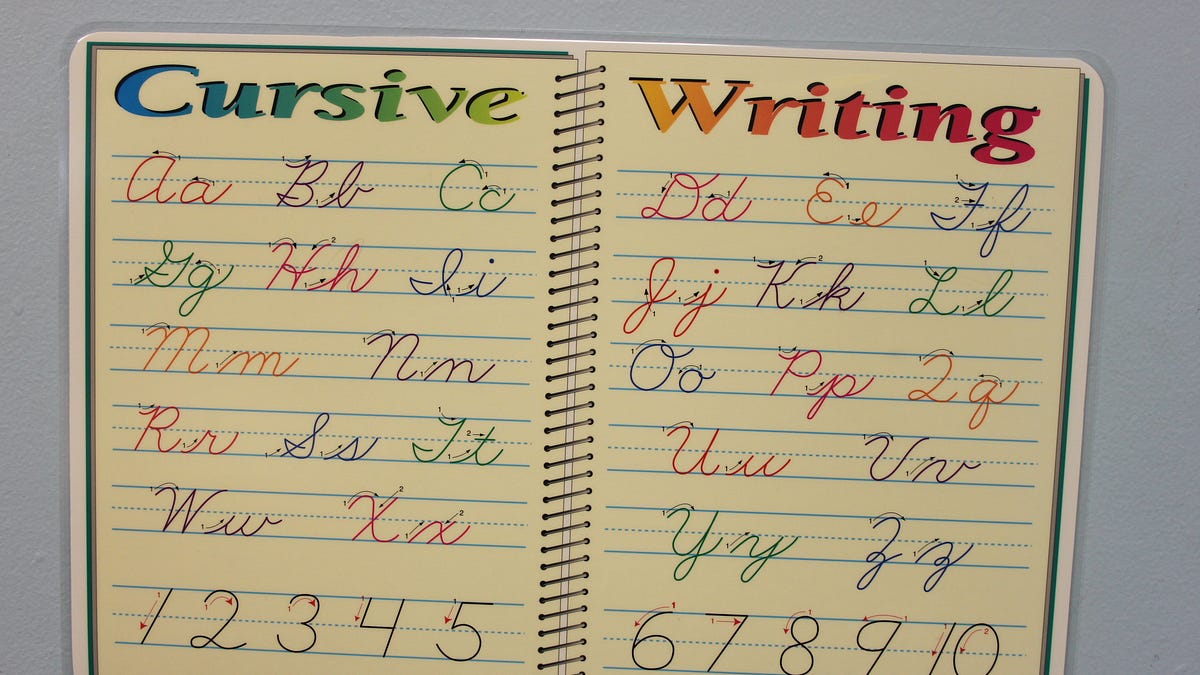 Cursive Writing
Aa Bb Cc Dd Ee Ff
Gg Hh Ii Jj Kk Ll
Mm Nn Oo Pp Qq
Rr Ss Tt Uu Vv
Ww Xx Yy Zz
1 2 3 4 5 6 7 8 9 10